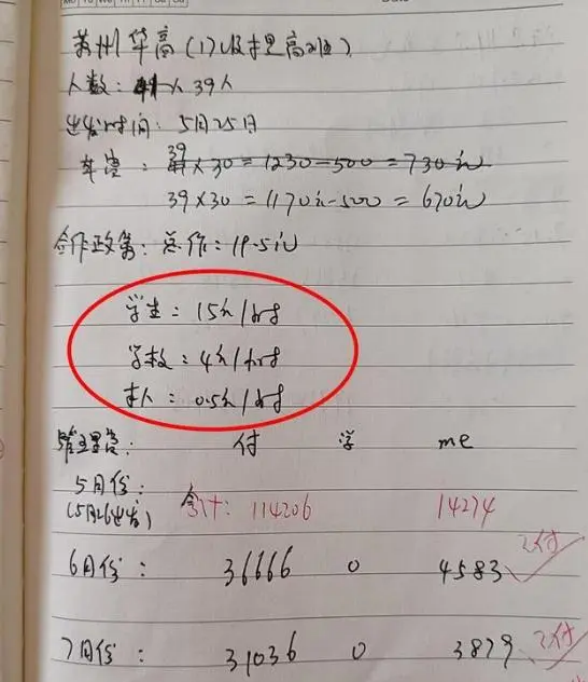 Mo Tu We Th Fr Sa Su
Date
苏州华高(17级提高班)
人数: 41人 39人
出发时间: 5月25日
车费: 41 39 ×30 = 1230-500 = 730元
39×30 = 1170元-500 = 670元
合作政策: 总价: 19.5元
学生: 15元/时
学校: 4元/时
本人: 0.5元/时
管理费: 付 学 me
5月份:
(5月26出发) 合计: 114206 14274
6月份: 36666 0 4583 已付
7月份: 31036 0 3879 已付